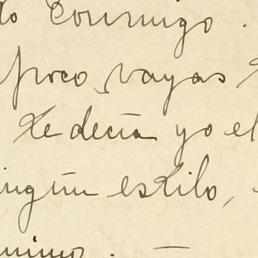 do conmigo.
poco vayas
te decía yo el
ingún estilo,